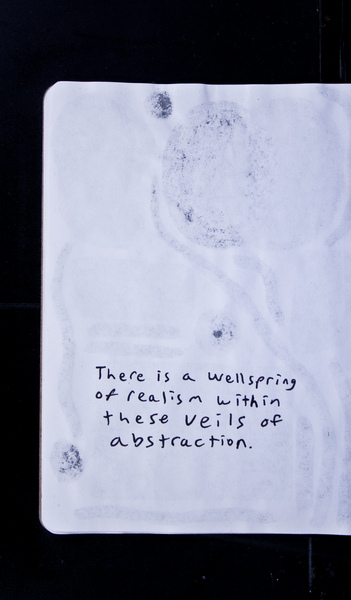 There is a wellspring
of realism within
these veils of
abstraction.